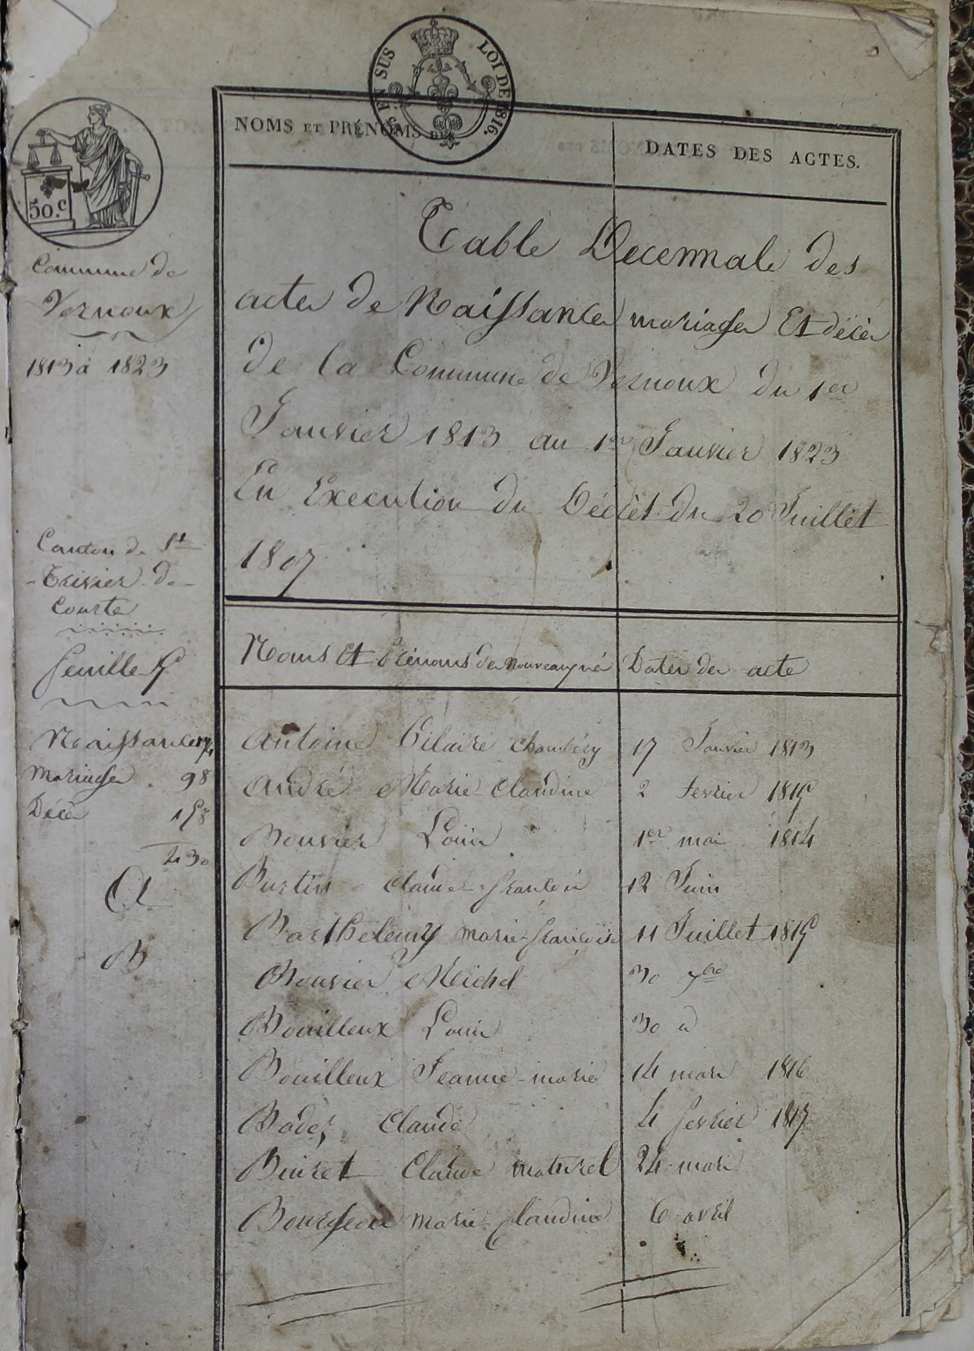 EN SUS LOI DE 1816.
50.c
NOMS ET PRÉNOMS DES DATES DES ACTES.
Commune de
Vernoux
1813 à 1823
Table Decennale des
actes de Naissances mariages Et décès
de la Commune de Vernoux du 1er
Janvier 1813 au 1er Janvier 1823
En Execution du Décrêt du 20 Juillet
1807
Canton de St
Trivier de
Courte
Noms Et Prénoms des nouveaux né Dates des acte
Naissances 174
mariages 98
Décès 158
430
A
Antoine Hilaire Chambéry 17 Janvier 1813
André Marie Claudine 2 fevrier 1815
B
Bouvier Louis 1er mai 1814
Burtin Claude françois 12 Juin
Barthelemy marie françoise 11 Juillet 1815
Bouvier Michel 30 7bre
Bouilleux Louis 30 d
Bouilleux Jeanne-marie 14 mars 1816
Badez Claude 4 fevrier 1817
Buiret Claude naturel 24 mars
Bourgeois marie-Claudine 6 avril